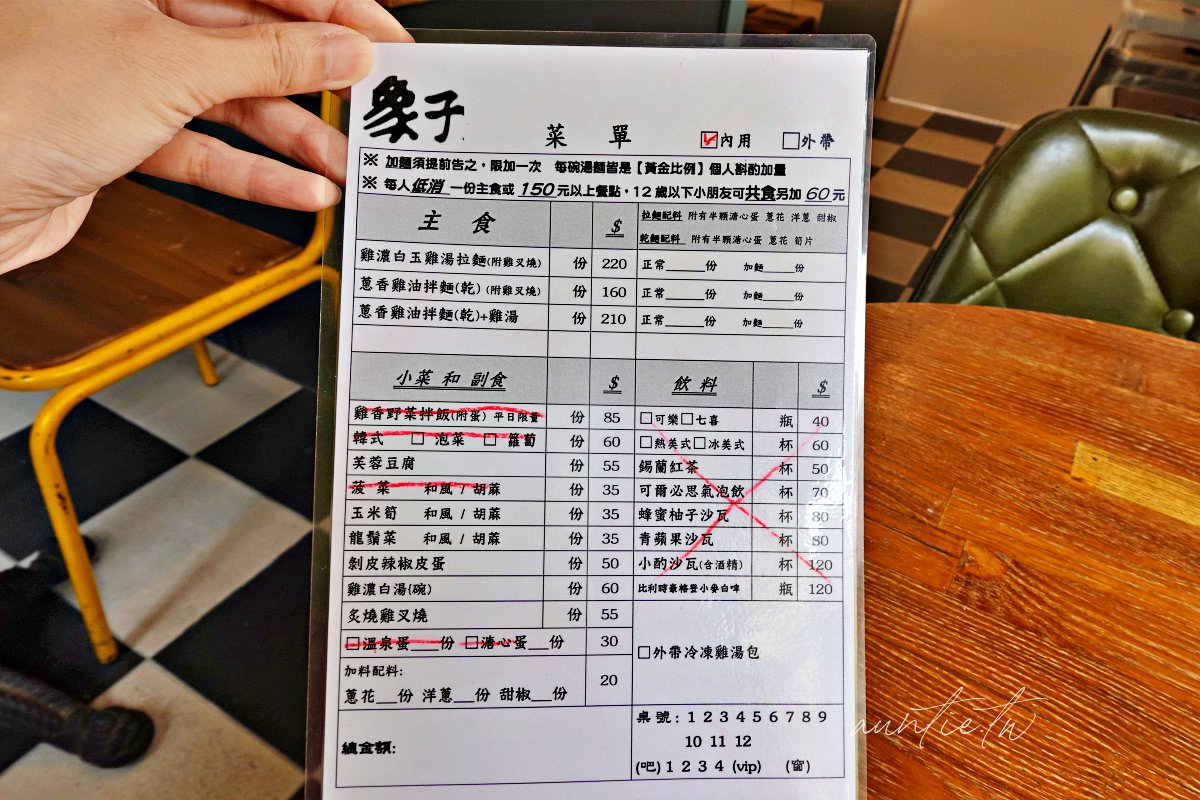 象子
菜 單 ☑內用 □外帶
※ 加麵須提前告之，限加一次 每碗湯麵皆是【黃金比例】個人斟酌加量
※ 每人低消 一份主食或 150 元以上餐點，12 歲以下小朋友可共食另加 60 元
主 食 $ 拉麵配料 附有半顆溏心蛋 蔥花 洋蔥 甜椒
乾麵配料 附有半顆溏心蛋 蔥花 筍片
雞濃白玉雞湯拉麵(附雞叉燒) 份 220 正常______份 加麵_____份
蔥香雞油拌麵(乾) (附雞叉燒) 份 160 正常______份 加麵_____份
蔥香雞油拌麵(乾)+雞湯 份 210 正常______份 加麵_____份
小菜 和 副食 $ 飲 料 $
雞香野菜拌飯(附蛋) 平日限量 份 85 □可樂□七喜 瓶 40
韓式 □ 泡菜 □ 蘿蔔 份 60 □熱美式□冰美式 杯 60
芙蓉豆腐 份 55 錫蘭紅茶 杯 50
菠 菜 和風 / 胡蔴 份 35 可爾必思氣泡飲 杯 70
玉米筍 和風 / 胡蔴 份 35 蜂蜜柚子沙瓦 杯 80
龍鬚菜 和風 / 胡蔴 份 35 青蘋果沙瓦 杯 80
剝皮辣椒皮蛋 份 50 小酌沙瓦(含酒精) 杯 120
雞濃白湯(碗) 份 60 比利時豪格登小麥白啤 瓶 120
炙燒雞叉燒 份 55
□溫泉蛋___份 □溏心蛋__份 30 □外帶冷凍雞湯包
加料配料:
蔥花__份 洋蔥__份 甜椒__份 20
總金額: 桌號: 1 2 3 4 5 6 7 8 9
10 11 12
(吧) 1 2 3 4 (vip) (窗)
auntie.tw